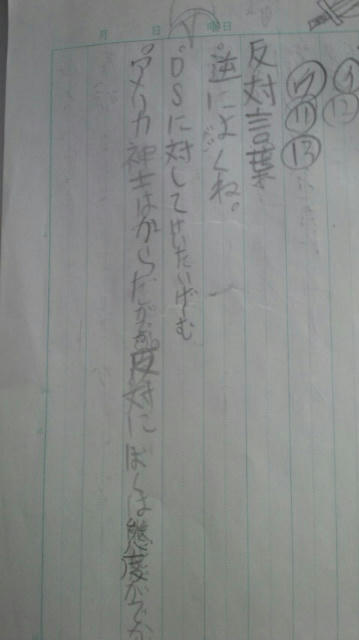 月 日 曜日
⑪ ⑬
反対言葉
。逆によくね。
。DSに対してけいたいげーむ
。アメリカ神士はからだが反対にぼくは態度がでか